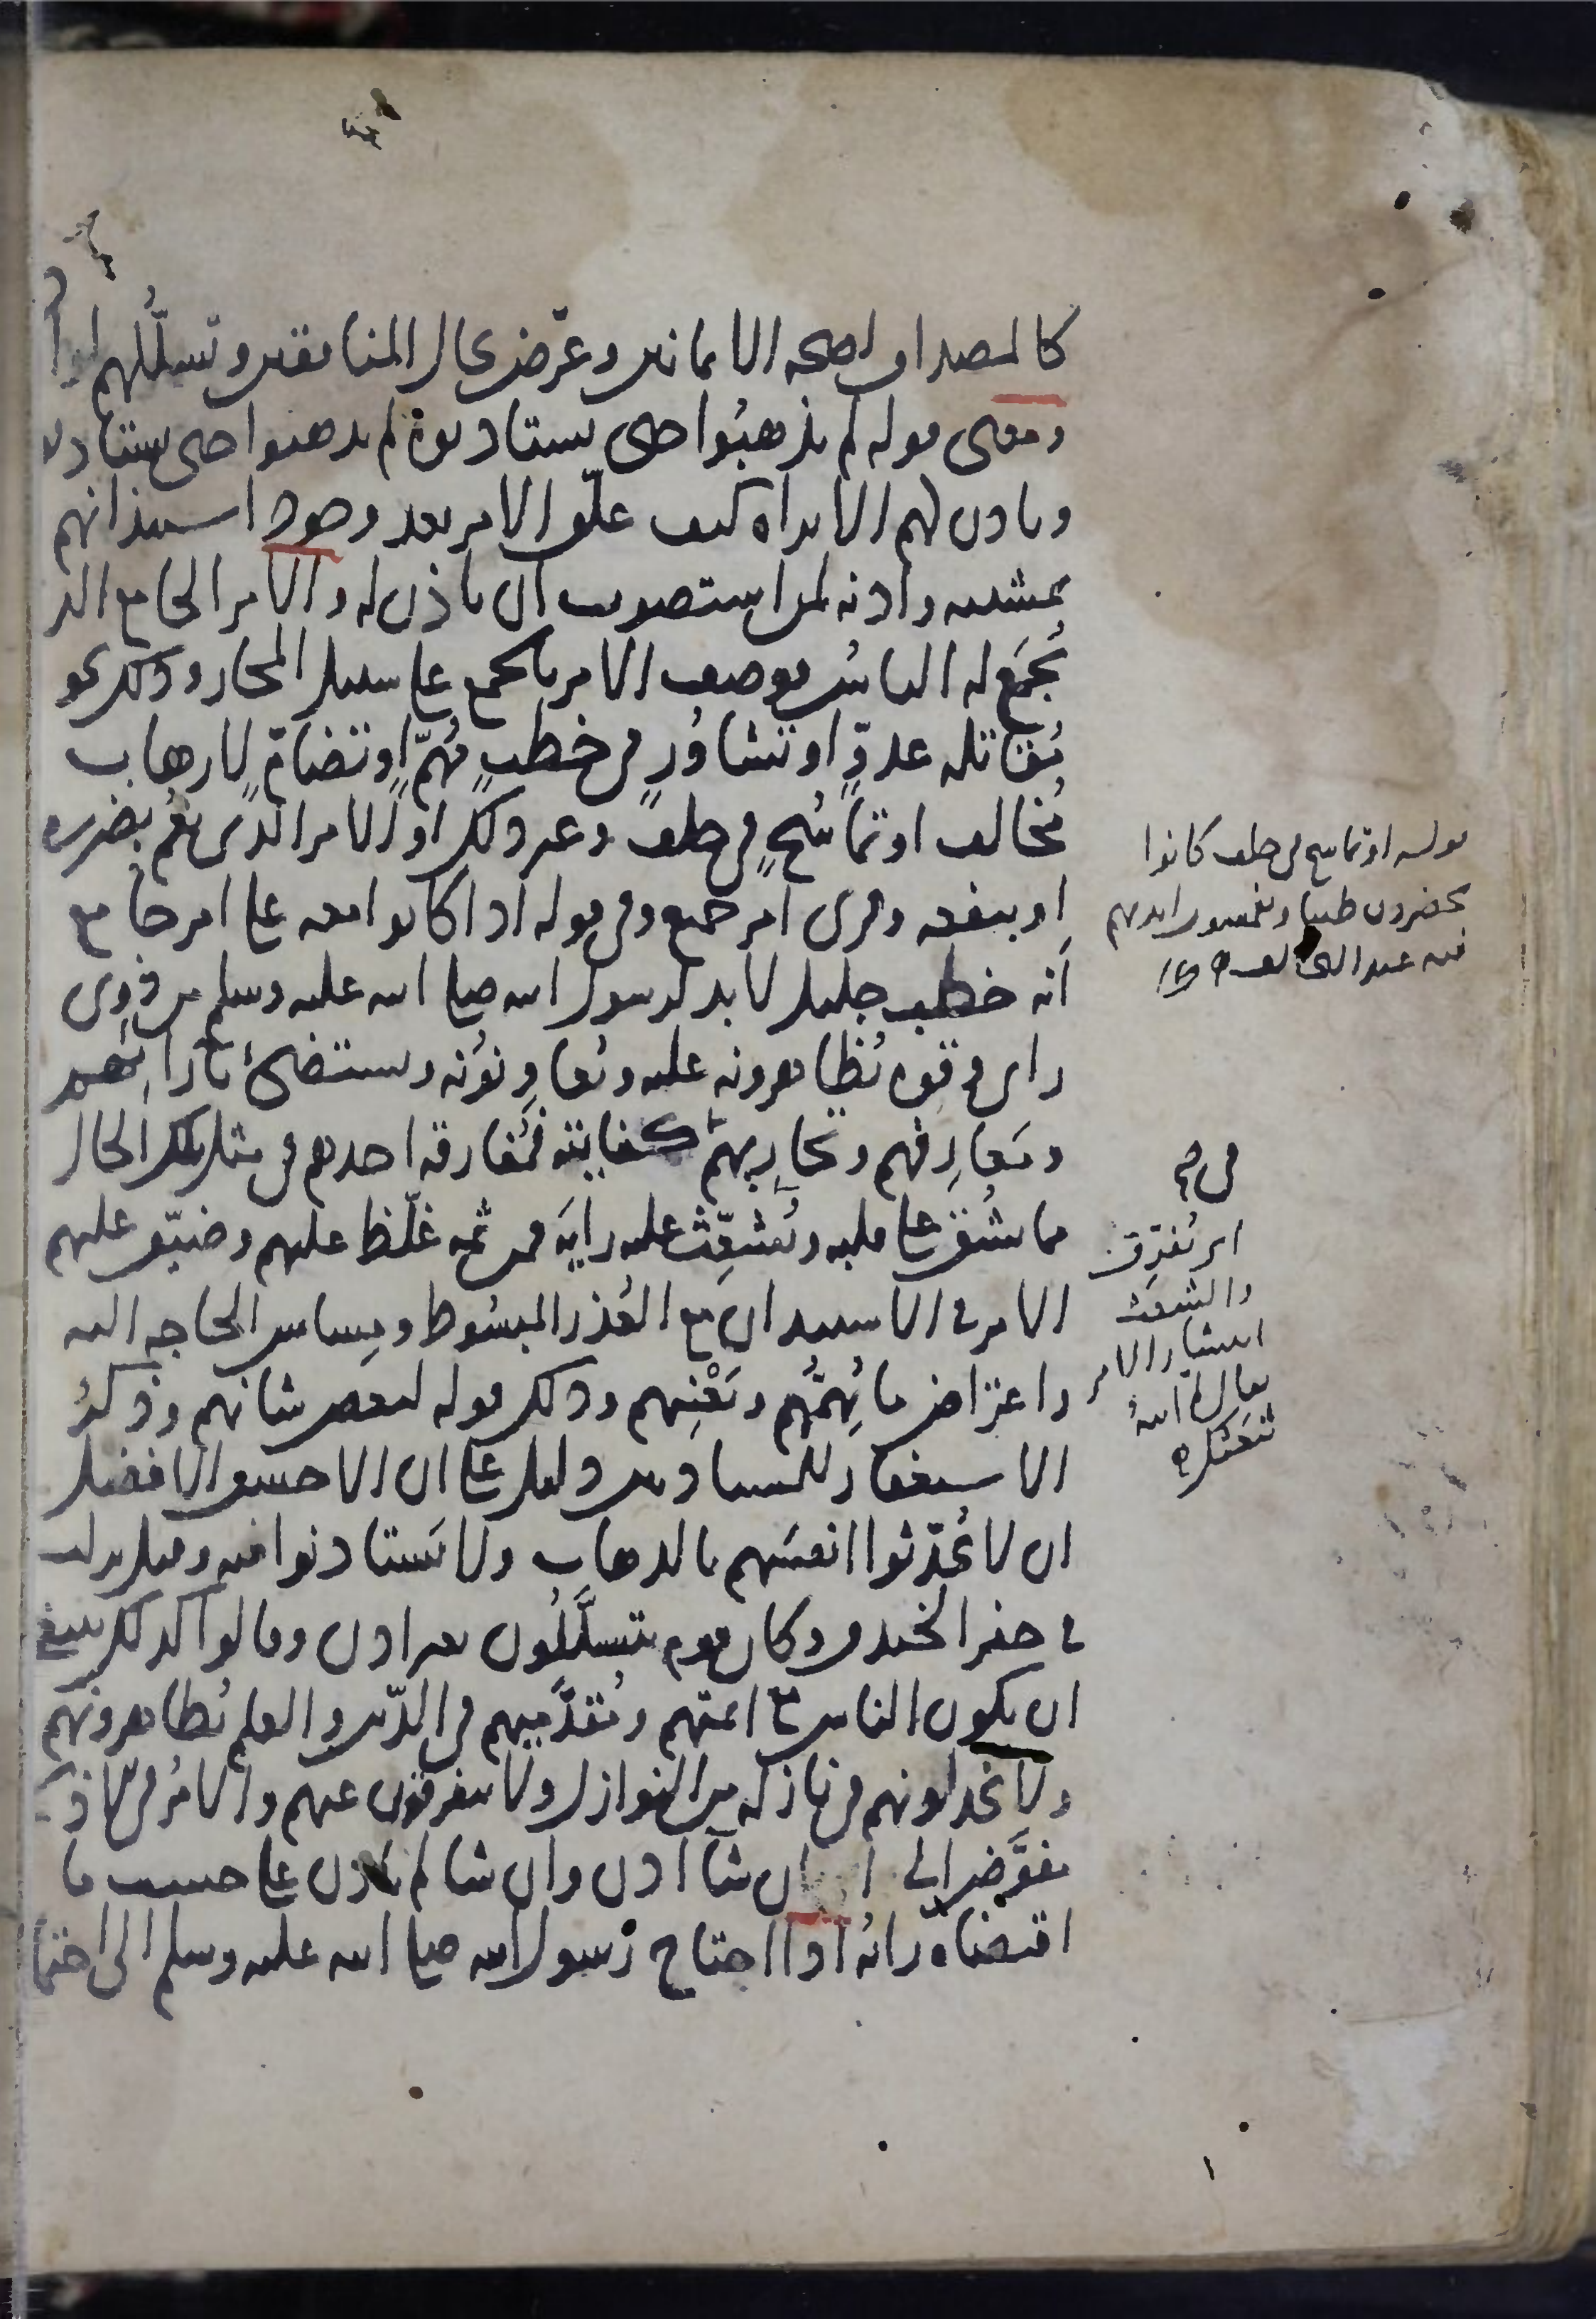 كالمصداق لصحه الايمانين وعرّض بحال المنافقين وتسلُّلهم لواذا
ومعنى قوله لم يذهبُوا حتى يستاذنوه لم يذهبوا حتى يستاذنوه
وياذن لهم الا تراه كيف علّق الامر بعد وجود استيذانهم
بمشيته واذنه لمن استصوب ان ياذن له والامر الجامع الذي
يُجمَع له الناسُ فوصف الامر بالجمع على سبيل المجاز وذلك نحو
مُقاتله عدوٍّ او تشاوُرٍ في خطبٍ مُهمّ او تضامٍّ لارهاب
مُخالف او تماسُحٍ في حلف وغير ذلك او الامر الذي يعُم بضرره
او بنفعه وقرى امر جميع وفي قوله اذا كانوا معه على امر جامع
انه خطب جليل لا بد لرسول الله صلى الله عليه وسلم من ذوِي
راى وقوه يُظاهرونه عليه ويُعاوِنوُنه ويستضىُ بارائهم
ومَعارِفهم وتجارِبهم في كفايته فمُفارقه احدهم في مثل تلك الحال
مما يشُق على قلبه ويُشعِّث عليه رايَه فمن ثمه غلّظ عليهم وضيّق عليهم
الامر في الاستيذان مع العُذر المبسُوط ومِساس الحاجه اليه
واعتراض ما يُهمُّهم ويَعْنِيهم وذلك قوله لبعض شانهم وذكرُ
الاستغفار للمستاذنين دليل على ان الاحسن الافضل
ان لا يُحدّثوا انفسَهم بالذهاب ولا يَستاذنوا فيه وقيل نزلت
في حفر الخندق وكان قوم يتسلَّلُون بغير اذن وقالوا كذلك ينبغي
ان يكون الناس مع ائمتهم ومُقدَّميهم في الدّين والعلم يُظاهرونهم
ولا يخذلونهم في نازله من النوازل ولا يتفرقون عنهم والامرُ في الاذن
مفوَّض الى ا ان شآ اذن وان شا لم ياذن على حسب ما
اقتضاه رايُه اذا احتاج رسول الله صلى الله عليه وسلم الى اجتما
قوله او تماسح في حلف كانوا
يحضرون طيبا ويغمسون ايديهم
فيه عند التحالف
اى يُفرّق
والشعث
انتشار الامر
يقال لم الله
شَعثكه